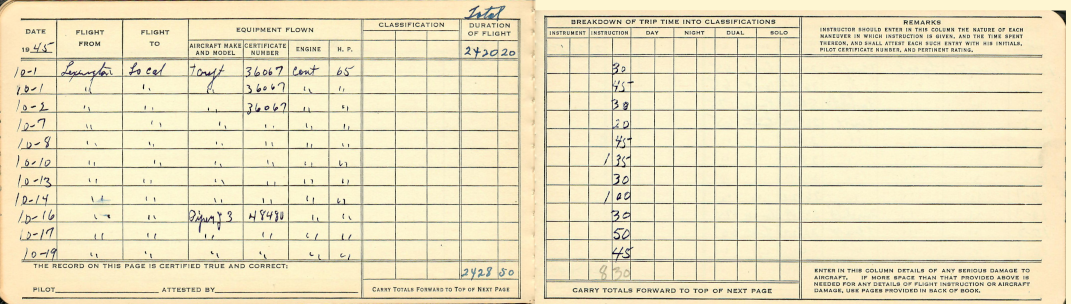 Total
DATE FLIGHT FROM FLIGHT TO EQUIPMENT FLOWN CLASSIFICATION DURATION OF FLIGHT
1945 AIRCRAFT MAKE AND MODEL CERTIFICATE NUMBER ENGINE H. P. 2420 20
10-1 Lexington Local Tcraft 36067 Cont 65
10-1 " " " 36067 " "
10-2 " " " 36067 " "
10-7 " " " " " "
10-8 " " " " " "
10-10 " " " " " "
10-13 " " " " " "
10-14 " " " " " "
10-16 " " Piper J 3 48480 " "
10-17 " " " " " "
10-19 " " " " " "
THE RECORD ON THIS PAGE IS CERTIFIED TRUE AND CORRECT: 2428 50
PILOT ATTESTED BY CARRY TOTALS FORWARD TO TOP OF NEXT PAGE
BREAKDOWN OF TRIP TIME INTO CLASSIFICATIONS
INSTRUMENT INSTRUCTION DAY NIGHT DUAL SOLO
REMARKS
INSTRUCTOR SHOULD ENTER IN THIS COLUMN THE NATURE OF EACH
MANEUVER IN WHICH INSTRUCTION IS GIVEN, AND THE TIME SPENT
THEREON, AND SHALL ATTEST EACH SUCH ENTRY WITH HIS INITIALS,
PILOT CERTIFICATE NUMBER, AND PERTINENT RATING.
30
45
30
20
45
1 35
30
1 00
30
50
45
8 30
CARRY TOTALS FORWARD TO TOP OF NEXT PAGE
ENTER IN THIS COLUMN DETAILS OF ANY SERIOUS DAMAGE TO
AIRCRAFT. IF MORE SPACE THAN THAT PROVIDED ABOVE IS
NEEDED FOR ANY DETAILS OF FLIGHT INSTRUCTION OR AIRCRAFT
DAMAGE, USE PAGES PROVIDED IN BACK OF BOOK.